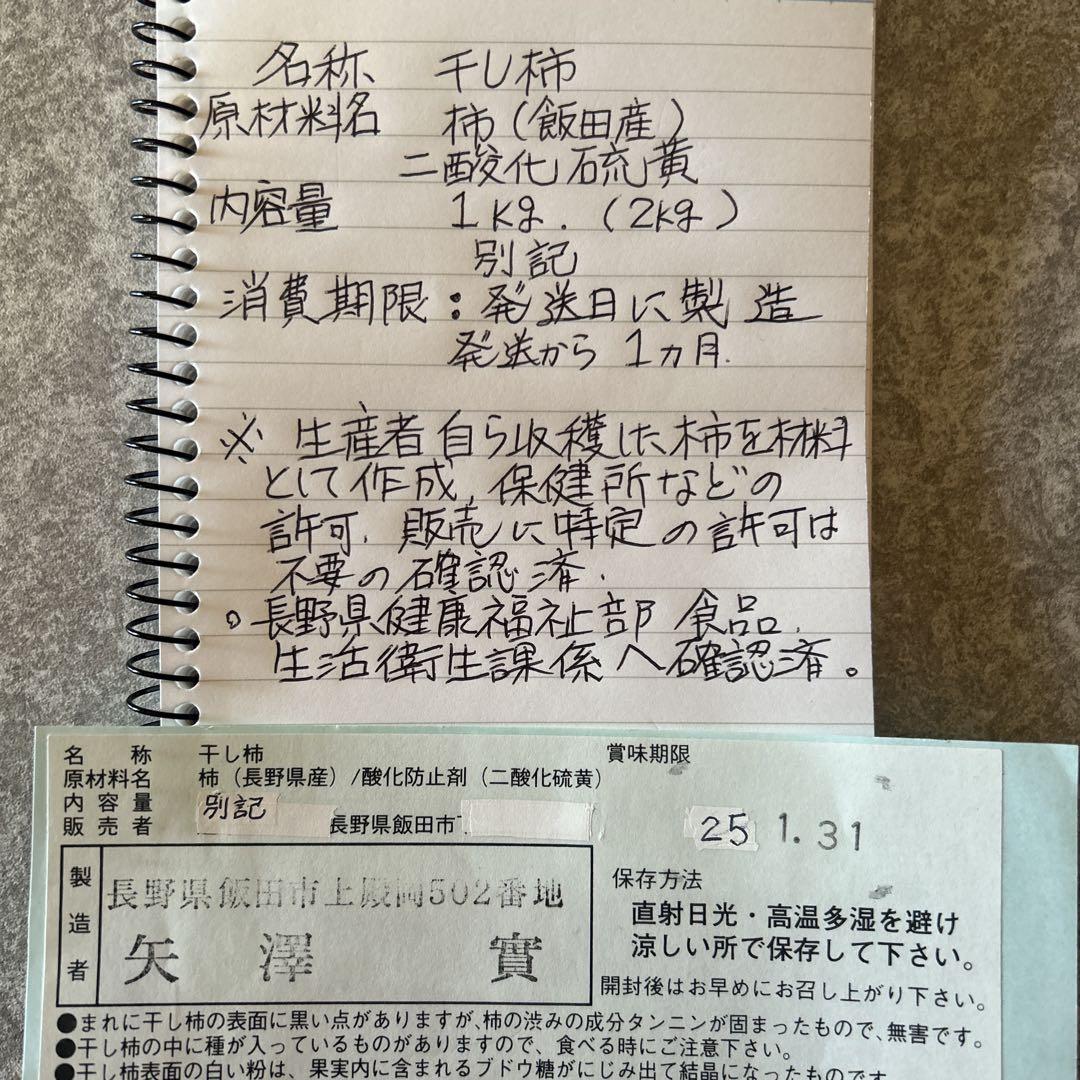 名称 干し柿
原材料名 柿(飯田産)
二酸化硫黄
内容量 1kg.(2kg)
別記
消費期限:発送日に製造
発送から1ヵ月.
※ 生産者自ら収穫した柿を材料
として作成,保健所などの
許可.販売に特定の許可は
不要の確認済.
。長野県健康福祉部 食品.
生活衛生課係へ確認済。
名称 干し柿 賞味期限
原材料名 柿(長野県産)/酸化防止剤(二酸化硫黄)
内容量 別記
販売者 長野県飯田市 25 1.31
製造者
長野県飯田市上殿岡502番地
矢澤 實
保存方法
直射日光・高温多湿を避け
涼しい所で保存して下さい。
開封後はお早めにお召し上がり下さい。
●まれに干し柿の表面に黒い点がありますが、柿の渋みの成分タンニンが固まったもので、無害です。
●干し柿の中に種が入っているものがありますので、食べる時にご注意下さい。
●干し柿表面の白い粉は、果実内に含まれるブドウ糖がにじみ出て結晶になったものです